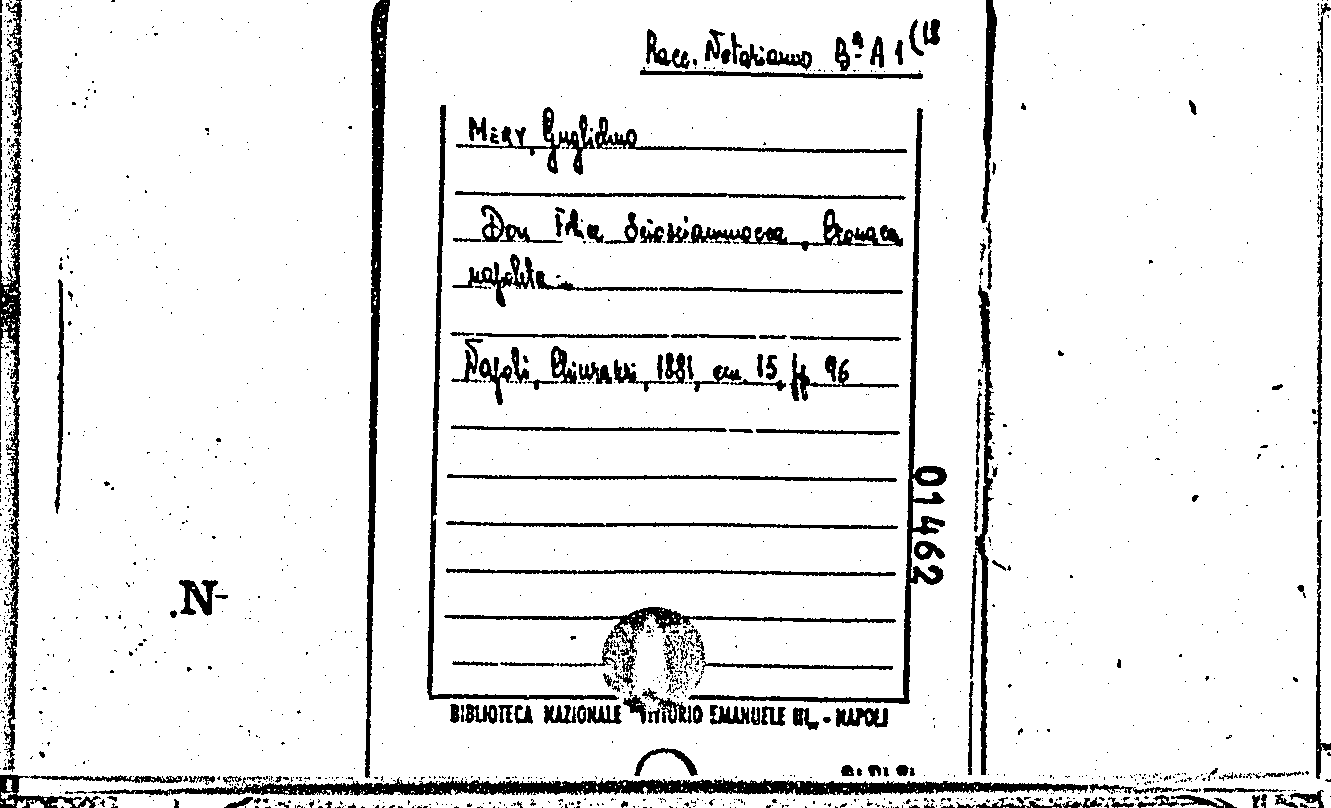 Racc. Notarianno Bª A 1 (18
MERY, Guglielmo
Don Felice Sciosciammocca, Cronaca
napoleta-
Napoli, Chiurazzi, 1881, cm. 15, pp. 96
01462
.N-
BIBLIOTECA NAZIONALE "VITTORIO EMANUELE III" - NAPOLI